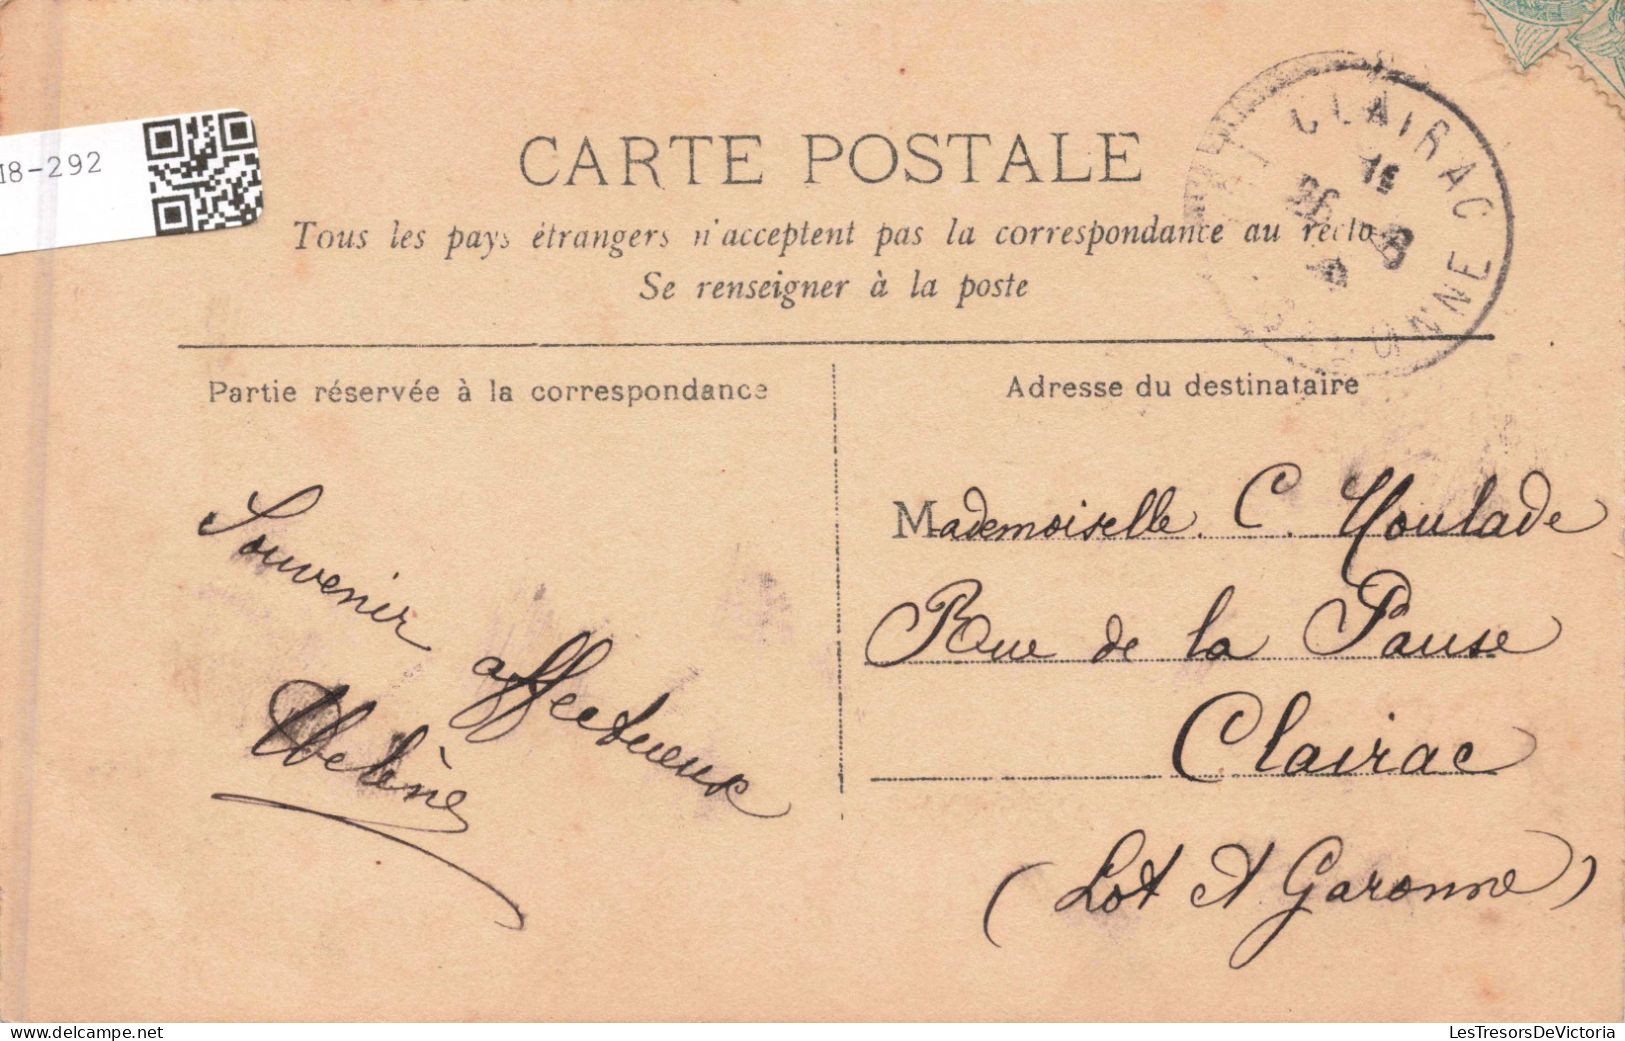 18-292
CARTE POSTALE
Tous les pays étrangers n'acceptent pas la correspondance au recto
Se renseigner à la poste
CLAIRAC
Partie réservée à la correspondance
Adresse du destinataire
Souvenir
affectueux
Hélène
Mademoiselle. C. Moulade
Rue de la Pause
Clairac
(Lot et Garonne)
LesTresorsDeVictoria